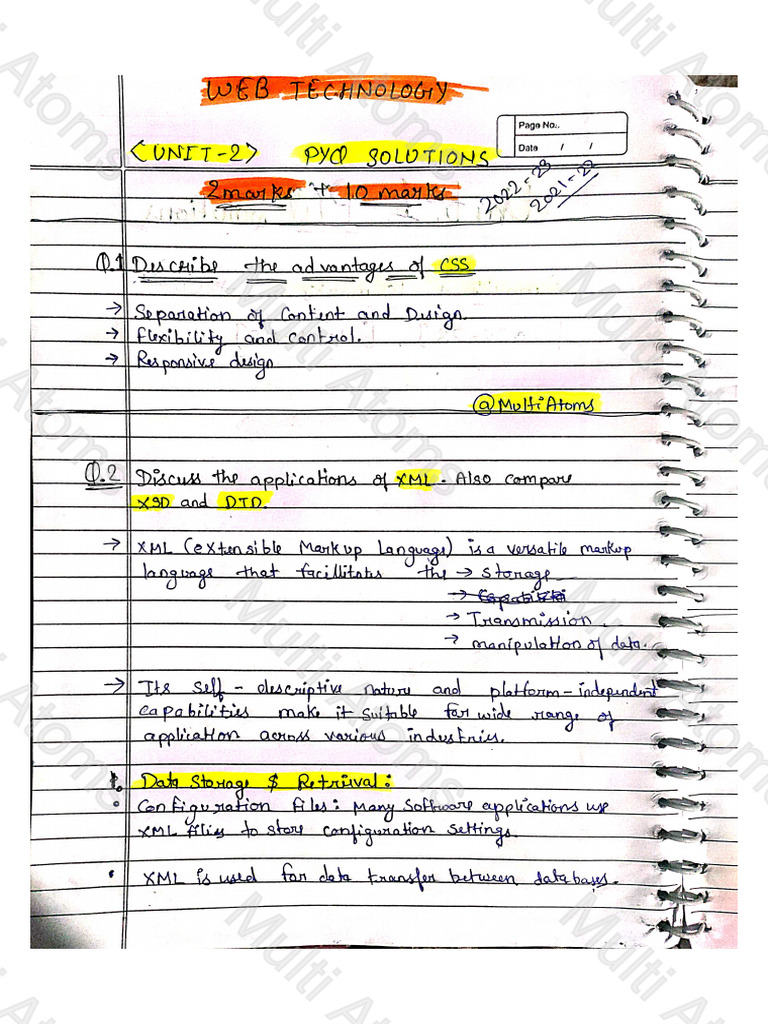 WEB TECHNOLOGIY
Page No..
Date / /
<UNIT-2> PYQ SOLUTIONS
2marks + 10 marks 2022-23
2021-22
Q.1 Describe the advantages of CSS
→ Separation of Content and Design.
→ Flexibility and control.
→ Responsive design
@MultiAtoms
Q.2 Discuss the applications of XML. Also compare
XSD and DTD.
→ XML (extensible Markup Language) is a versatile markup
language that facilitates the → storage
→ Transmission.
→ manipulation of data.
→ Its self-descriptive nature and platform-independent
capabilities make it suitable for wide range of
application across various industries.
1. Data Storage & Retrieval:
• Configuration files: Many software applications use
XML files to store configuration settings.
• XML is used for data transfer between databases.
Multi Atoms